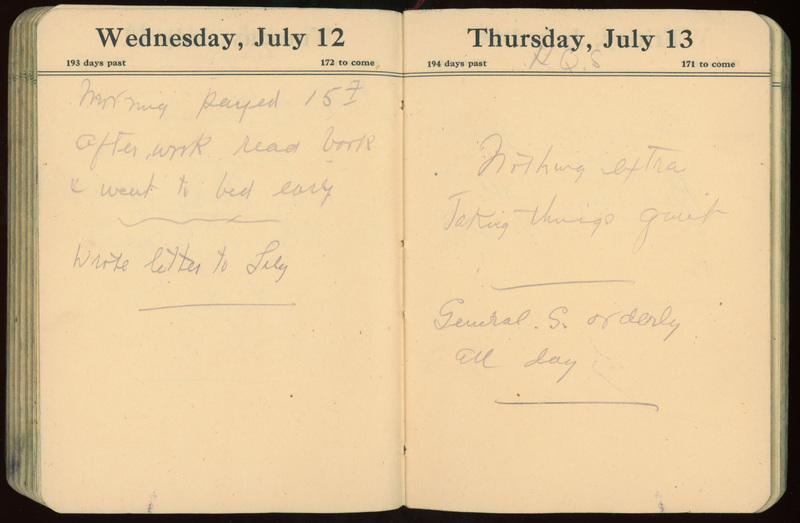 Wednesday, July 12
193 days past 172 to come
Morning payed 15 F
After work read book
& went to bed early
Wrote letter to Lily
Thursday, July 13
194 days past 171 to come
H.Q.S
Nothing extra
Taking things quiet
General S. orderly
all day